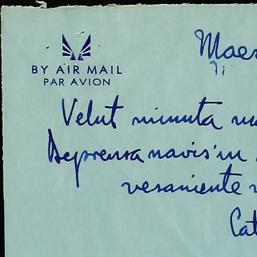 Maes
BY AIR MAIL
PAR AVION
Velut minuta
Deprensa navis in
vesaniente
Cat